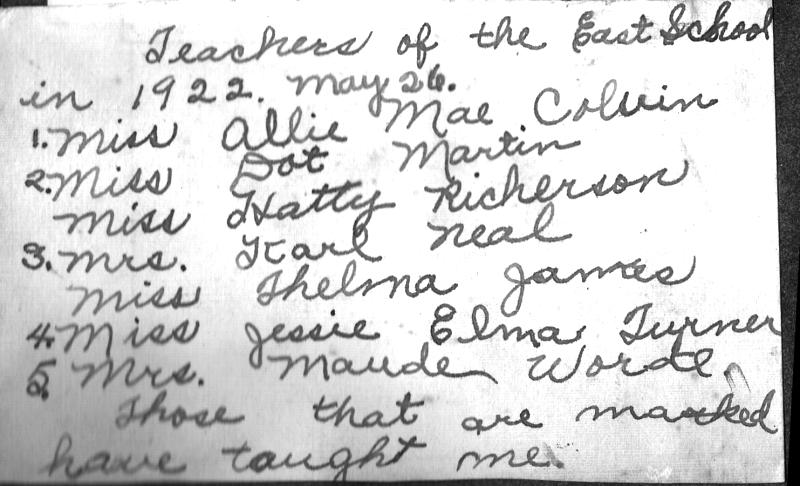 Teachers of the East School
in 1922. May 26.
1. Miss Allie Mae Colvin
2. Miss Dot Martin
Miss Hatty Richerson
3. Mrs. Karl Neal
Miss Thelma James
4. Miss Jessie Elma Turner
5. Mrs. Maude Worde.
Those that are marked
have taught me.